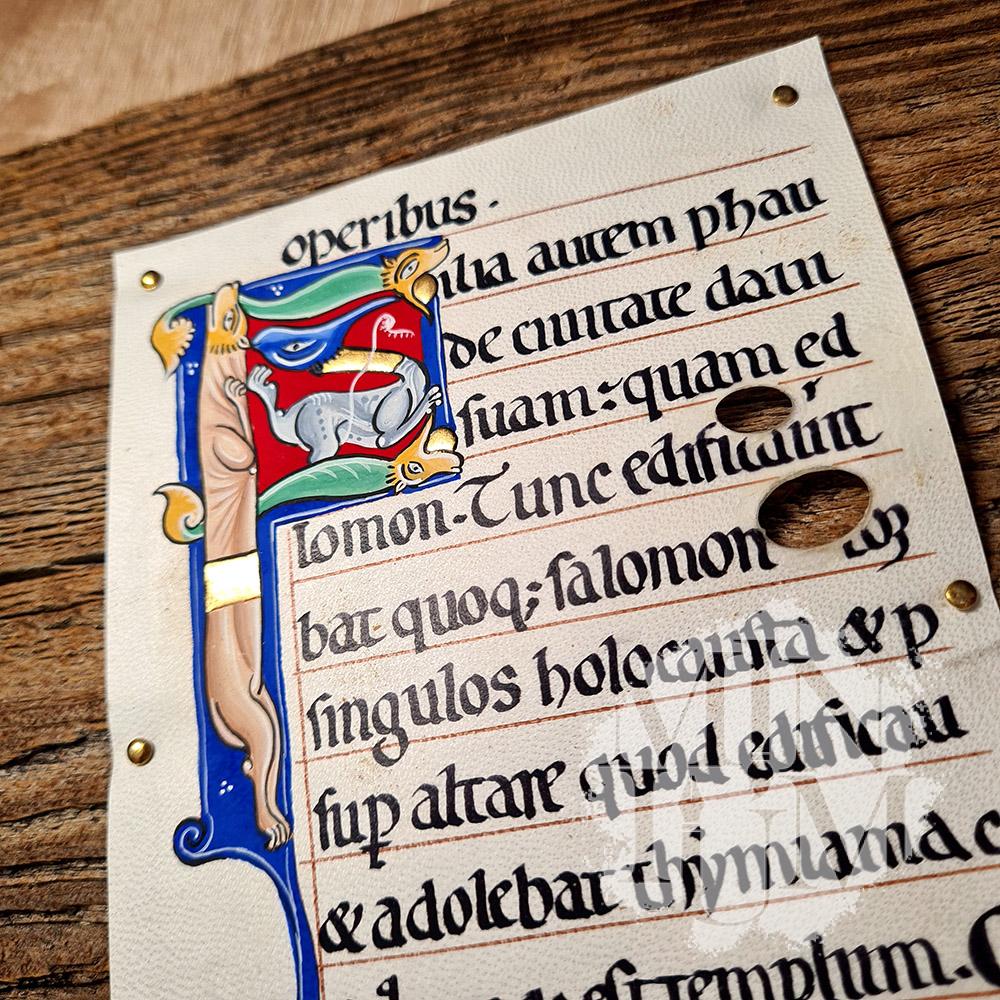 operibus.
Filia autem phau
de ciuitate daui
ſuam: quam ed
lomon. Tunc
bat quoq; ſalomon
ſingulos holocauſta & p
ſup altare quod edificau
& adolebat thymiama c
eſt templum.
MIN
IUM